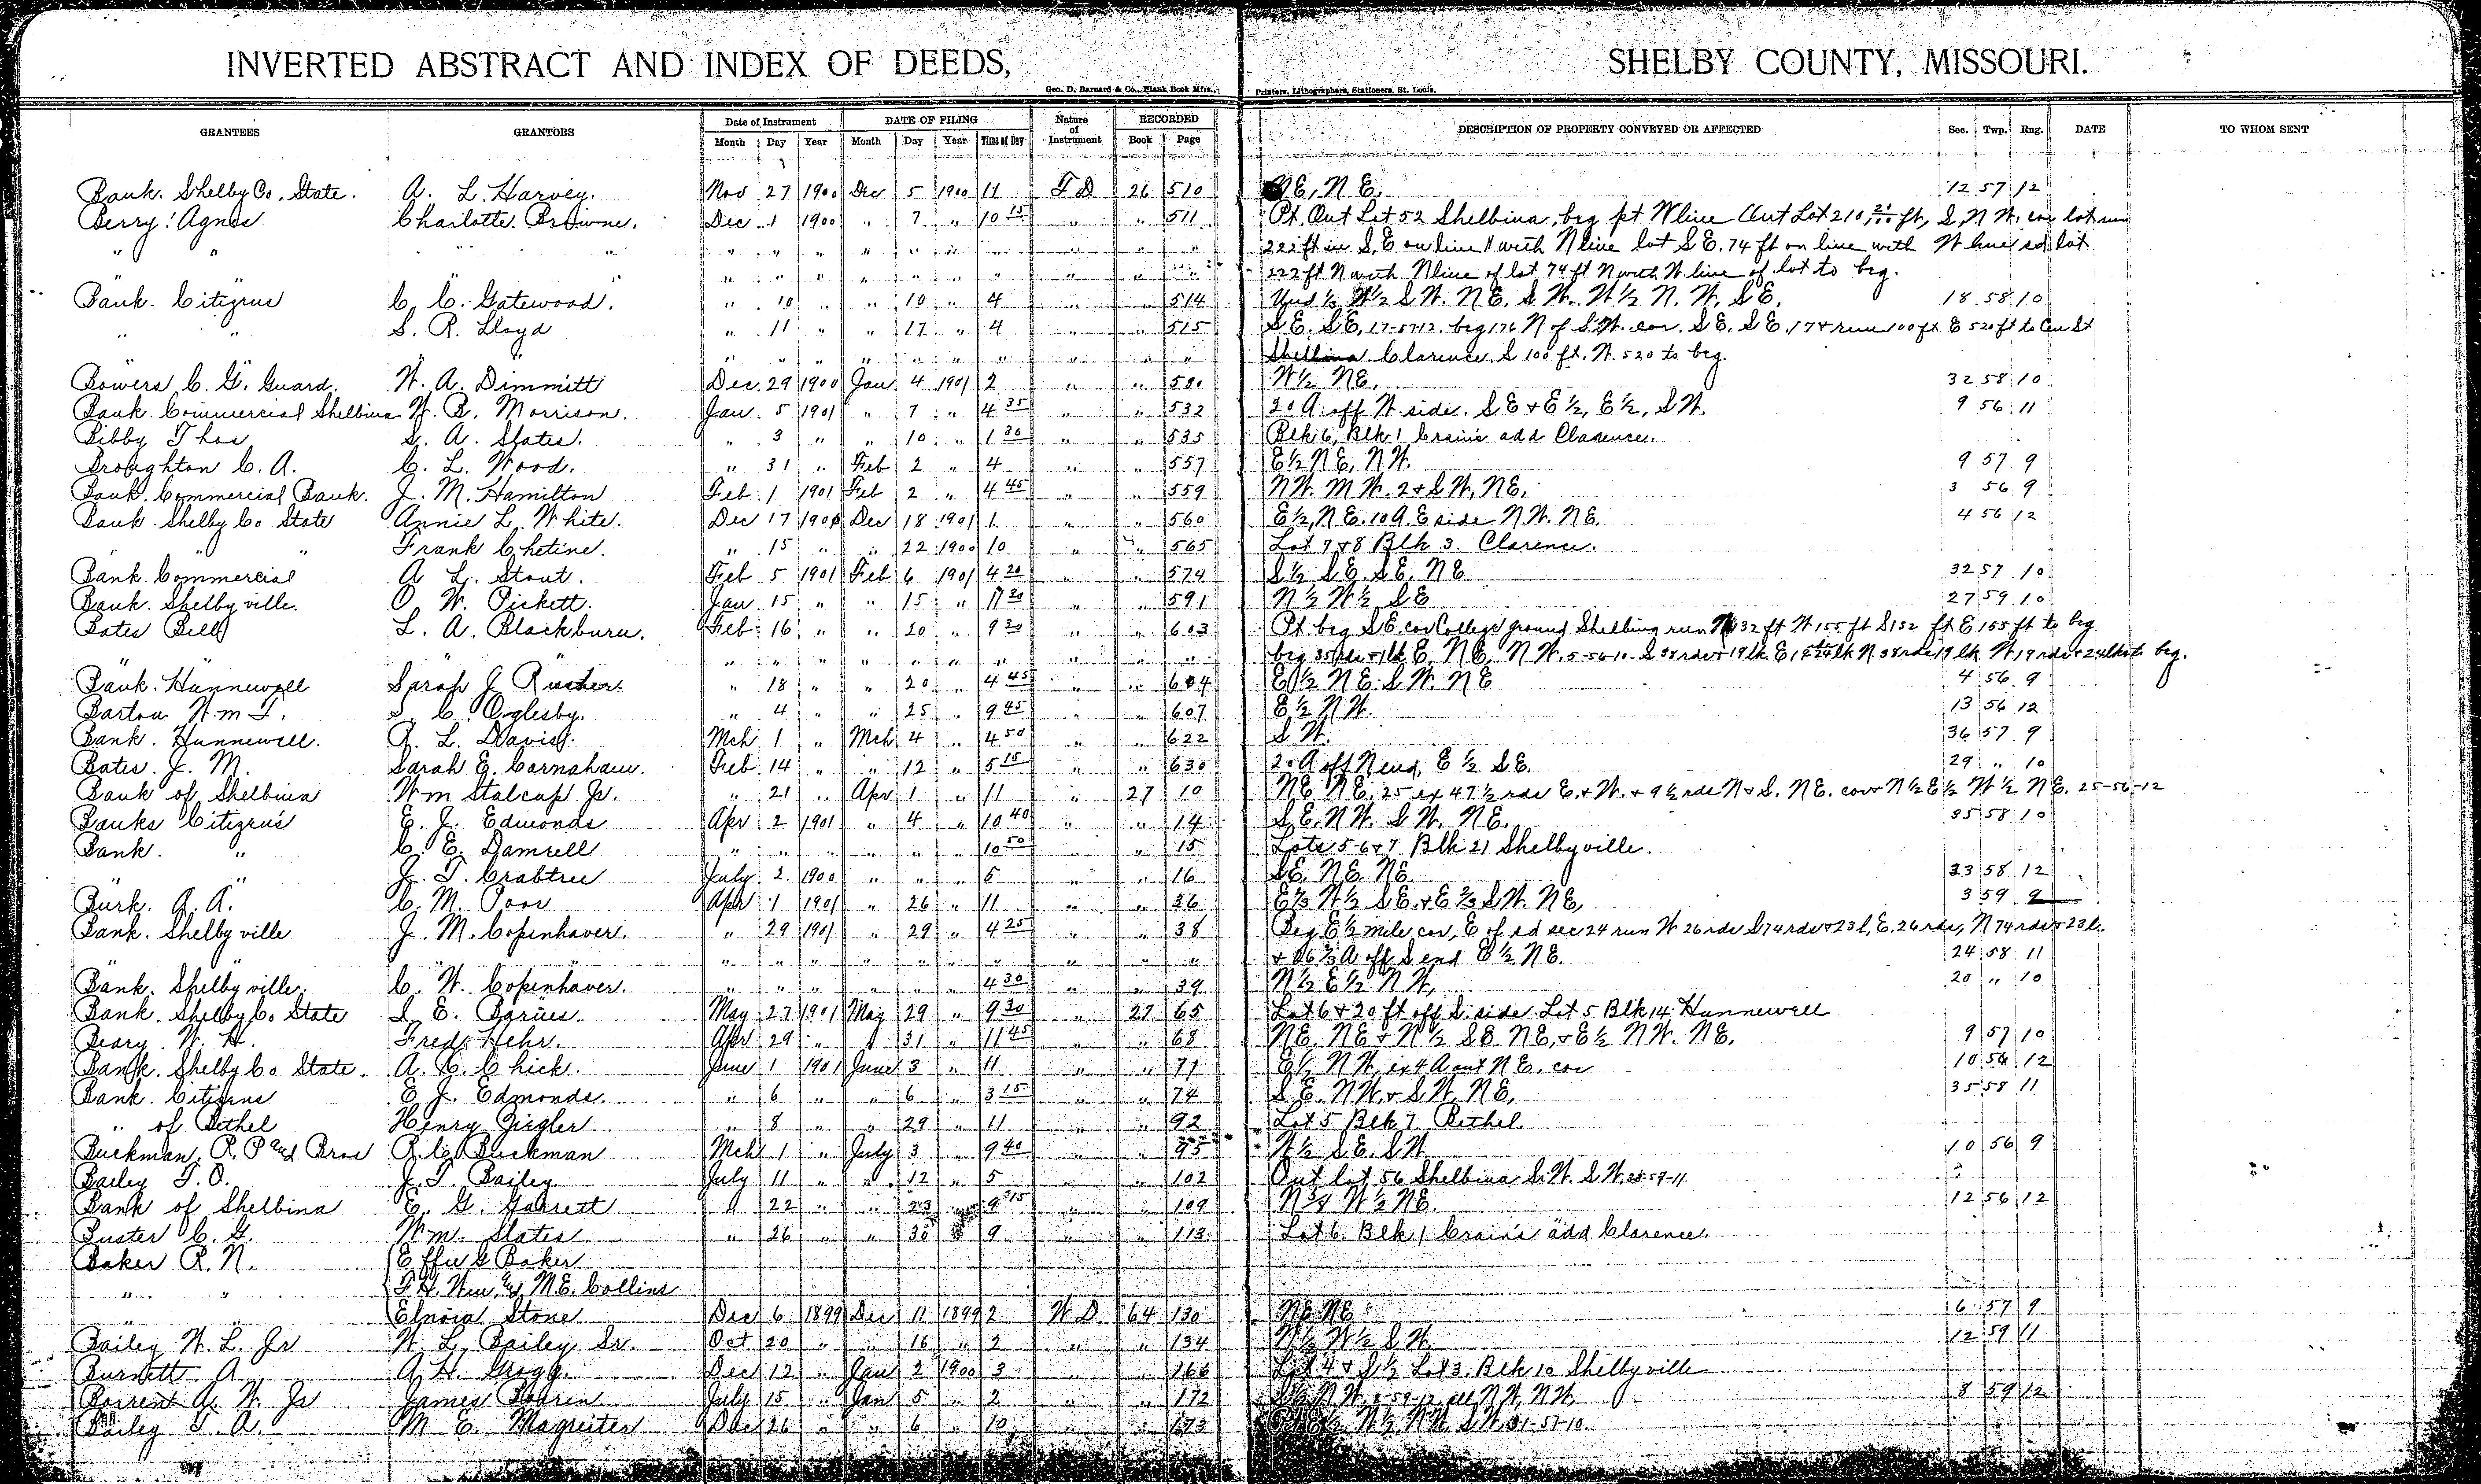 INVERTED ABSTRACT AND INDEX OF DEEDS, SHELBY COUNTY, MISSOURI.
Geo. D. Barnard & Co., Blank Book Mfrs., Printers, Lithographers, Stationers, St. Louis.
GRANTEES GRANTORS Date of Instrument DATE OF FILING Nature of Instrument RECORDED DESCRIPTION OF PROPERTY CONVEYED OR AFFECTED Sec. Twp. Rng. DATE TO WHOM SENT
Month Day Year Month Day Year Time of Day Book Page
Bank. Shelby Co. State. A. L. Harvey. Nov 27 1900 Dec 5 1900 11 T D 26 510 NE, NE. 12 57 12
Berry. Agnes Charlotte Browne. Dec 1 1900 " 7 " 10 15 " " 511 Pt. Out Lot 52 Shelbina, beg pt W line Out Lot 210 ft, S, N W. cor lot run
" " " " " " " " " " " " " " 222 ft in S. E on line // with N line lot S E. 74 ft on line with W line sd lot
" " " " " " " " " " 222 ft N with N line of lot 74 ft N with W. line of lot to beg.
Bank. Citizens C. C. Gatewood. " 10 " " 10 " 4 " " 514 Und 1/3 W 1/2 S W. N E. S W. W 1/2 N. W, S E. 18 58 10
" " S. R. Lloyd " 11 " " 17 " 4 " " 515 S E. S E, 17-57-12. beg 176 N of S W. cor. S E. S E. 17 & run 100 ft E 520 ft to Cen St
" " " " " " " " " " " " Clarence. S 100 ft. W. 520 to beg.
Bowers C. G. Guard. W. A. Dimmitt Dec. 29 1900 Jan. 4 1901 2 " " 530 W 1/2 NE. 32 58 10
Bank. Commercial Shelbina W. B. Morrison. Jan. 5 1901 " 7 " 4 35 " " 532 20 A. off W. side. S E & E 1/2, E 1/2, S W. 9 56 11
Bibby Thos S. A. States. " 3 " " 10 " 1 30 " " 535 Blk 6, Blk 1 Crain's add Clarence.
Broughton C. A. C. L. Wood. " 31 " Feb 2 " 4 " " 557 E 1/2 N E, N W. 9 57 9
Bank. Commercial Bank. J. M. Hamilton Feb 1 1901 Feb 2 " 4 45 " " 559 N W. N W. 2 & S W, N E. 3 56 9
Bank. Shelby Co State Annie L. White. Dec 17 1900 Dec 18 1901 1. " " 560 E 1/2, N E. 10 A. E side N. W. N E. 4 56 12
" " " Frank Chetine. " 15 " " 22 1900 10 " " 565 Lot 7 & 8 Blk 3. Clarence.
Bank. Commercial A L. Stout. Feb 5 1901 Feb 6 1901 4 20 " " 574 S 1/2 S E. S E. N E 32 57 10
Bank. Shelbyville. O. W. Pickett. Jan 15 " " 15 " 11 30 " " 591 N 1/2 W 1/2 S E 27 59 10
Bates Bell L. A. Blackburn. Feb 16 " " 20 " 9 30 " " 603 Pt. beg S E. cor College ground Shelbina run N 132 ft W 155 ft S 152 ft E 155 ft to beg
" " " " " " " " " " " " beg 35 rds & 1 lk E. N E, N W. 5-56-10. S 38 rds & 19 lk E, 19 & 24 lk N. 38 rds 19 lk W, 19 rds & 24 lks to beg.
Bank. Hunnewell Sarah J. " 18 " " 20 " 4 45 " " 604 E 1/2 N E. S W. N E 4 56 9
Barton Wm T. S. C. Oglesby. " 4 " " 25 " 9 45 " " 607 E 1/2 N W. 13 56 12
Bank. Hunnewell. R. L. Davis. Mch 1 " Mch 4 " 4 50 " " 622 S W. 36 57 9
Bates. J. M. Sarah E. Carnahan. Feb 14 " " 12 " 5 15 " " 630 20 A off N end, E 1/2 S E. 29 " 10
Bank of Shelbina Wm Stalcup Jr. " 21 " Apr 1 " 11 " 27 10 N E N E. 25 ex 47 1/2 rds E. & W. & 9 1/2 rds N & S. N E. cor & N 1/2 E 1/2 W 1/2 N E. 25-56-12
Banks Citizens E. J. Edmonds Apr 2 1901 " 4 " 10 40 " " 14 S E. N W. S W. N E. 35 58 10
Bank. " C. E. Damrell " " " " " " 10 50 " " 15 Lots 5-6 & 7 Blk 21 Shelbyville.
" " J. T. Crabtree July 2 1900 " " " 5 " " 16 S E. N E. N E. 33 58 12
Burk. A. A. C. M. Poor Apr 1 1901 " 26 " 11 " " 36 E 2/3 W 1/2 S E. & E 2/3 S W. N E, 3 59 9
Bank. Shelbyville J. M. Copenhaver. " 29 1901 " 29 " 4 25 " " 38 Beg E 1/2 mile cor, E of sd sec 24 run W 26 rds S 74 rds & 23 l, E. 26 rds, N 74 rds & 23 l.
" " " " " " " " " " " " " & 26 2/3 A off S end E 1/2. N E. 24 58 11
Bank. Shelbyville. C. W. Copenhaver. " " " " " " 4 30 " " 39 N 1/2 E 1/2 N W, 20 " 10
Bank. Shelby Co State S. E. Barnes. May 27 1901 May 29 " 9 30 " 27 65 Lot 6 & 20 ft off S. side Lot 5 Blk 14. Hunnewell
Beary. W. H. Fred Hehr. Apr 29 " " 31 " 11 45 " " 68 N E. N E & N 1/2 S E. N E, & E 1/2 N W. N E. 9 57 10
Bank. Shelby Co State. A. C. Chick. June 1 1901 June 3 " 11 " " 71 E 1/2 N W, ex 4 A out N E. cor 10 56 12
Bank. Citizens E J. Edmonds. " 6 " " 6 " 3 15 " " 74 S E. N W. & S W. N E, 35 58 11
" of Bethel Henry Ziegler " 8 " " 29 " 11 " " 92 Lot 5 Blk 7 Bethel.
Buckman, R. P and Bros R. C. Buckman Mch 1 " July 3 " 9 40 " " 95 W 1/2 S E. S W 10 56 9
Bailey T. O. J. T. Bailey July 11 " " 12 " 5 " " 102 Out lot 56 Shelbina S. W. S W. 28-57-11
Bank of Shelbina E. G. Garrett " 22 " " 23 " 9 15 " " 109 N 3/8 W 1/2 N E. 12 56 12
Buster C. G. Wm. States " 26 " " 30 " 9 " " 113 Lot 6. Blk 1 Crain's add Clarence.
Baker R. N. Effie G Baker
" " F. H. Wm. and M. E. Collins
" " Elnora Stone Dec 6 1899 Dec 11 1899 2 W D 64 130 N E N E 6 57 9
Bailey W. L. Jr W. L. Bailey Sr. Oct 20 " " 16 " 2 " " 134 W 1/2 W 1/2 S W. 12 59 11
Burnett A. A. H. Gragg. Dec 12 " Jan 2 1900 3 " " 166 Lot 4 & S 1/2 Lot 3. Blk 10 Shelbyville
A. W. Jr James July 15 " Jan 5 " 2 " " 172 S 1/2 N W, 8-59-12 all N W, N W. 8 59 12
Bailey T. A. M E. Magruter Dec 26 " " 6 " 10 " " 173 E 1/2, W 1/2, N W. S W. 31-57-10.